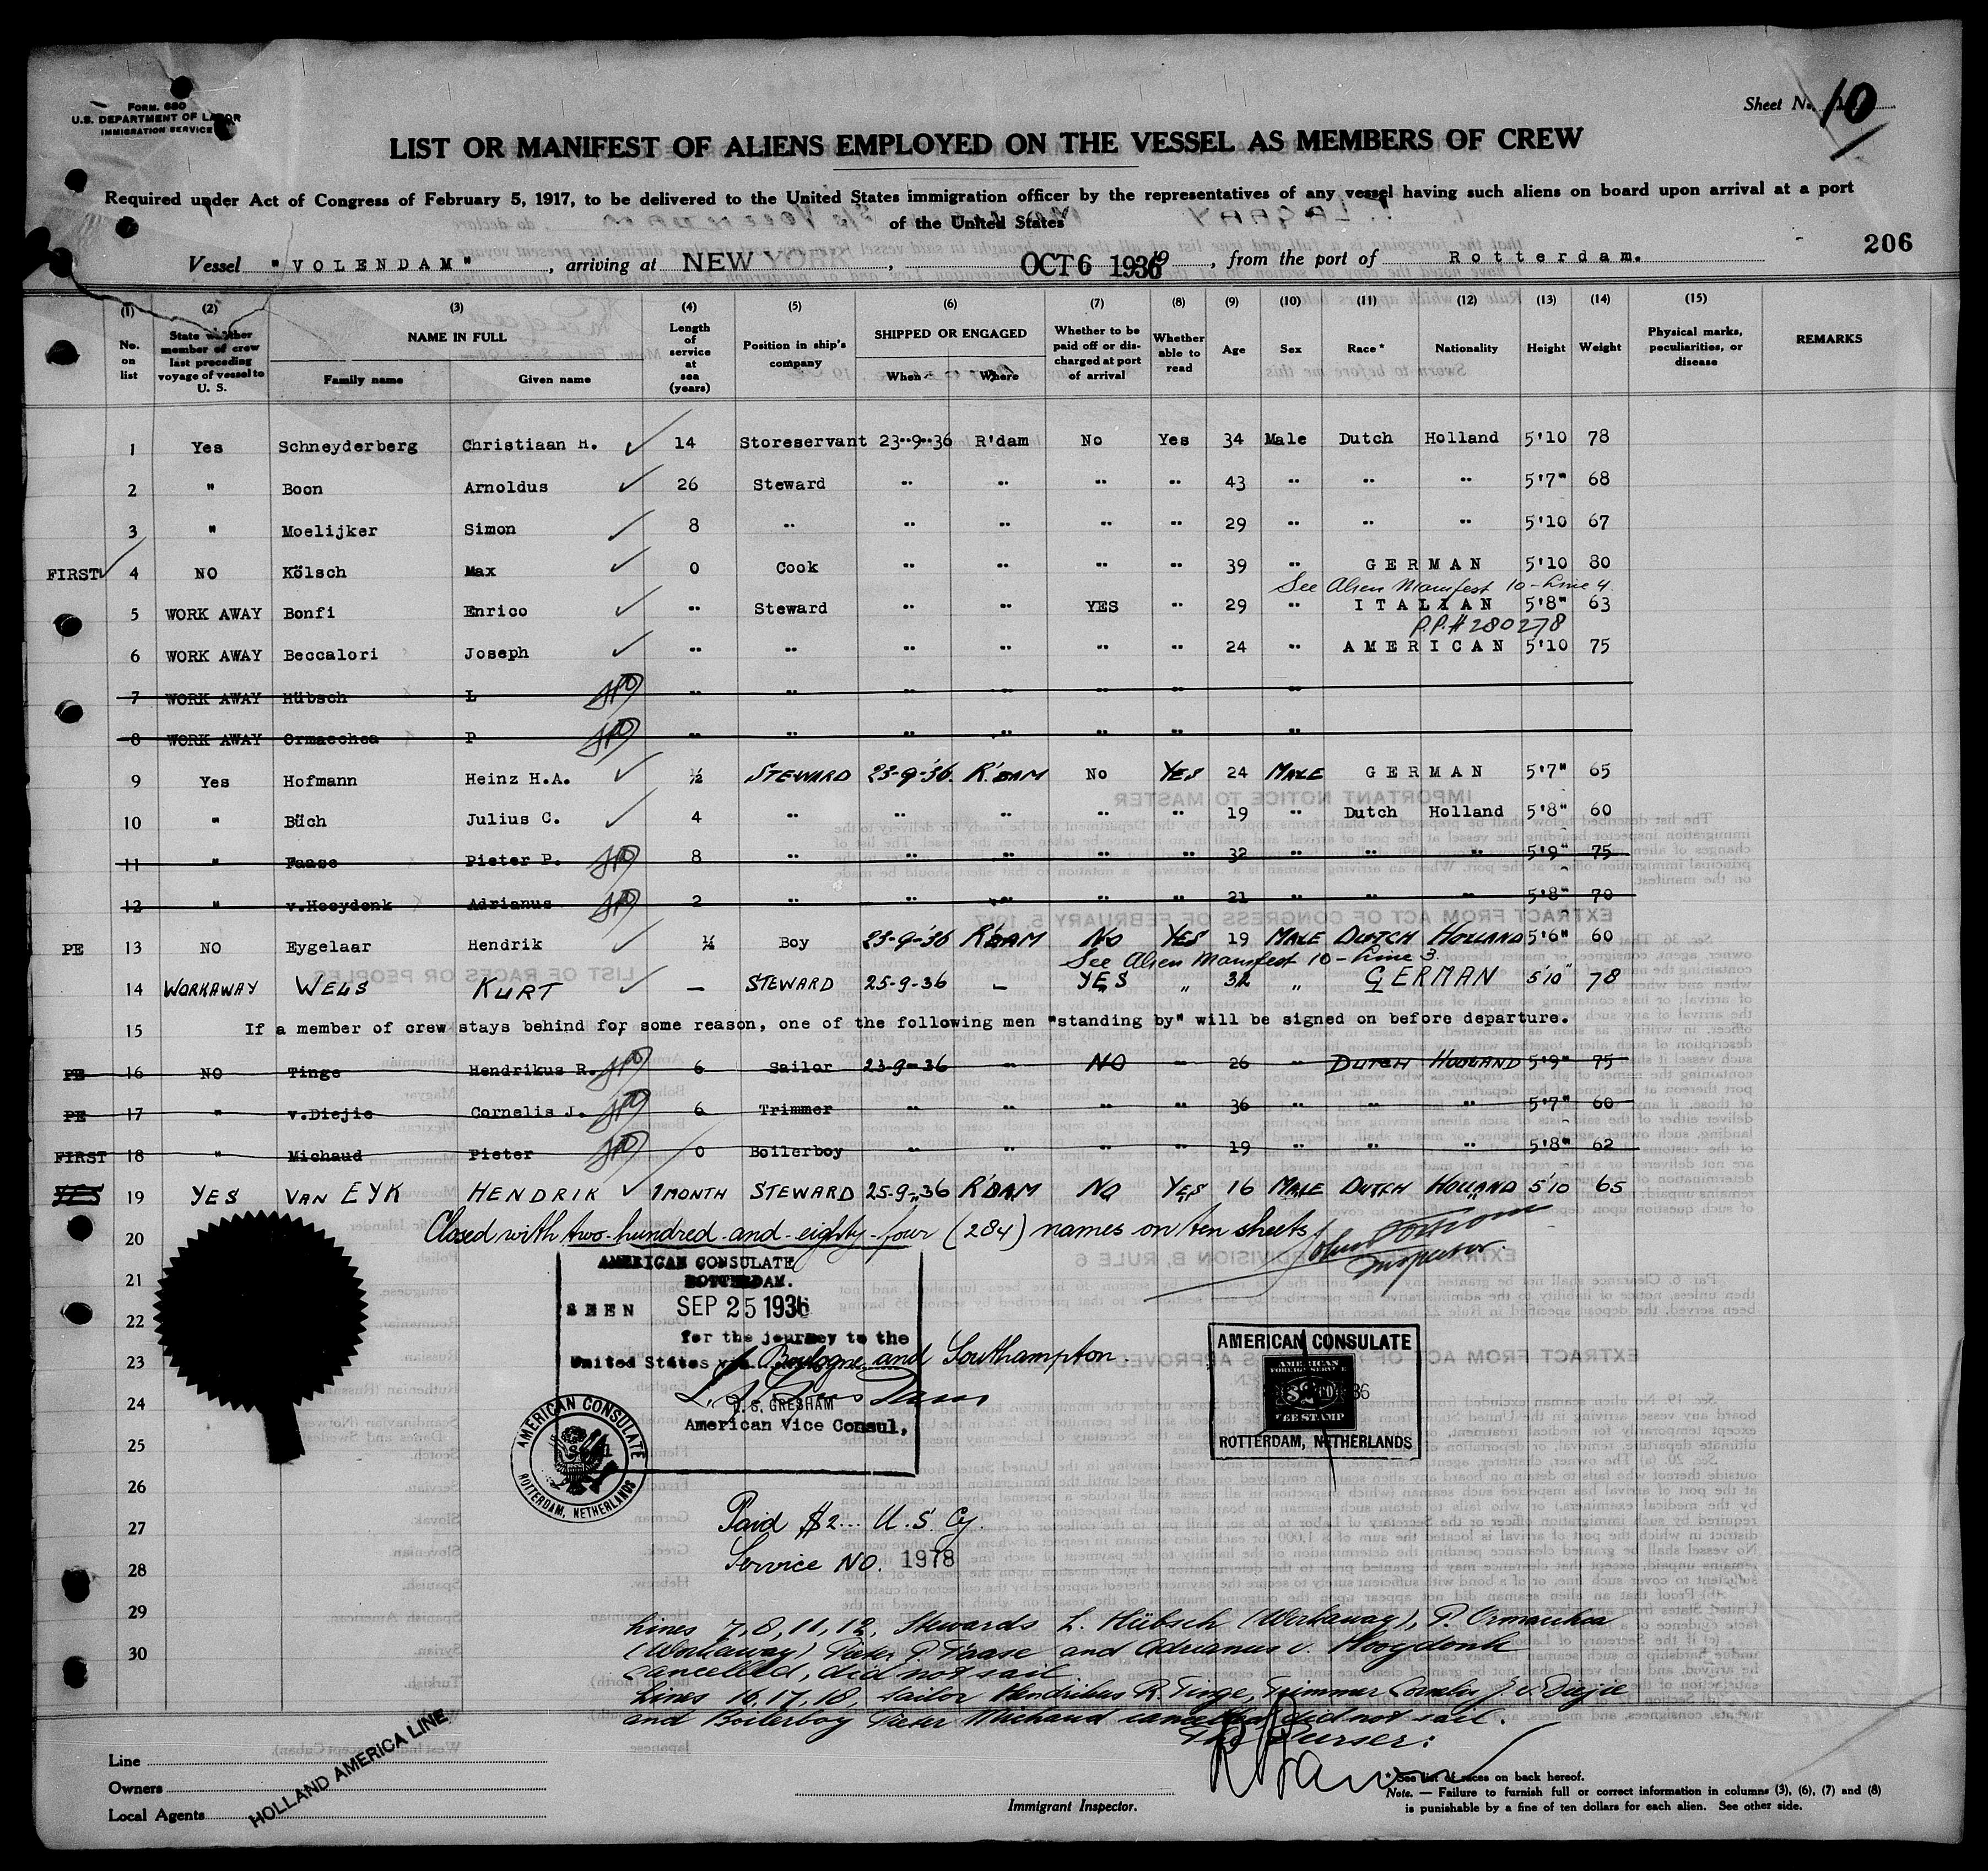 Form. 680
U.S. DEPARTMENT OF LABOR
IMMIGRATION SERVICE
Sheet No. 10
LIST OR MANIFEST OF ALIENS EMPLOYED ON THE VESSEL AS MEMBERS OF CREW
Required under Act of Congress of February 5, 1917, to be delivered to the United States immigration officer by the representatives of any vessel having such aliens on board upon arrival at a port
of the United States
206
Vessel "VOLENDAM", arriving at NEW YORK, OCT 6 1936 19, from the port of Rotterdam.
(1) (2) (3) (4) (5) (6) (7) (8) (9) (10) (11) (12) (13) (14) (15)
No. on list State whether member of crew last preceding voyage of vessel to U. S. NAME IN FULL Family name Given name Length of service at sea (years) Position in ship's company SHIPPED OR ENGAGED When Where Whether to be paid off or discharged at port of arrival Whether able to read Age Sex Race* Nationality Height Weight Physical marks, peculiarities, or disease REMARKS
1 Yes Schneyderberg Christiaan H. 14 Storeservant 23"9"36 R'dam No Yes 34 Male Dutch Holland 5'10 78
2 " Boon Arnoldus 26 Steward " " " " 43 " " " 5'7" 68
3 " Moelijker Simon 8 " " " " " 29 " " " 5'10 67
FIRST 4 NO Kölsch Max 0 Cook " " " " 39 " GERMAN 5'10 80
See Alien Manifest 10-Line 4.
5 WORK AWAY Bonfi Enrico " Steward " " YES " 29 " ITALIAN 5'8" 63
P.P.# 280278
6 WORK AWAY Beccalori Joseph " " " " " " 24 " AMERICAN 5'10 75
7 WORK AWAY Hübsch L " " " " " " "
8 WORK AWAY Ormaechea P " " " " " " "
9 Yes Hofmann Heinz H.A. ½ STEWARD 23-9-'36. R'DAM No YES 24 MALE GERMAN 5'7" 65
10 " Büch Julius C. 4 " " " " " 19 " Dutch Holland 5'8" 60
11 " Faase Pieter P. 8 " " " " " 32 " " " 5'9" 75
12 " v.Hooydonk Adrianus 2 " " " " " 21 " " " 5'8" 70
PE 13 NO Eygelaar Hendrik ¼ Boy 23-9-'36 R'DAM NO YES 19 MALE DUTCH HOLLAND 5'6" 60
See Alien Manifest 10-Line 3.
14 WORKAWAY WELS KURT — STEWARD 25-9-36 — YES " 32 " GERMAN 5'10" 78
15 If a member of crew stays behind for some reason, one of the following men "standing by" will be signed on before departure.
PE 16 NO Tinge Hendrikus R. 6 Sailor 23-9-36 " NO " 26 " DUTCH HOLLAND 5'9" 75
PE 17 " v.Diejie Cornelis J. 6 Trimmer " " " " 36 " " " 5'7" 60
FIRST 18 " Michaud Pieter 0 Boilerboy " " " " 19 " " " 5'8" 62
YES 19 YES VAN EYK HENDRIK 1 MONTH STEWARD 25-9-36 R'DAM NO YES 16 MALE DUTCH HOLLAND 5'10 65
20 Closed with two-hundred-and-eighty-four (284) names on ten sheets.
Inspector.
AMERICAN CONSULATE
ROTTERDAM.
21
SEEN SEP 25 1936
22
for the journey to the
United States via Boulogne and Southampton.
23
L. S. GRESHAM
American Vice Consul.
AMERICAN CONSULATE
ROTTERDAM, NETHERLANDS
AMERICAN CONSULATE
AMERICAN
FOREIGN SERVICE
$2
FEE STAMP
ROTTERDAM, NETHERLANDS
24
25
26
27 Paid $2... U.S. Cy.
28 Service NO. 1978
29 Lines 7, 8, 11, 12, Stewards L. Hübsch (Workaway), P. Ormaechea
30 (Workaway) Pieter P. Faase and Adrianus v. Hooydonk
cancelled, did not sail.
Lines 16, 17, 18, Sailor Hendrikus R. Tinge, Trimmer Cornelis J. v. Diejie
and Boilerboy Pieter Michaud cancelled, did not sail.
The Purser:
Line
Owners
Local Agents
HOLLAND AMERICA LINE
Immigrant Inspector.
* See list of races on back hereof.
Note. — Failure to furnish full or correct information in columns (3), (6), (7) and (8)
is punishable by a fine of ten dollars for each alien. See other side.